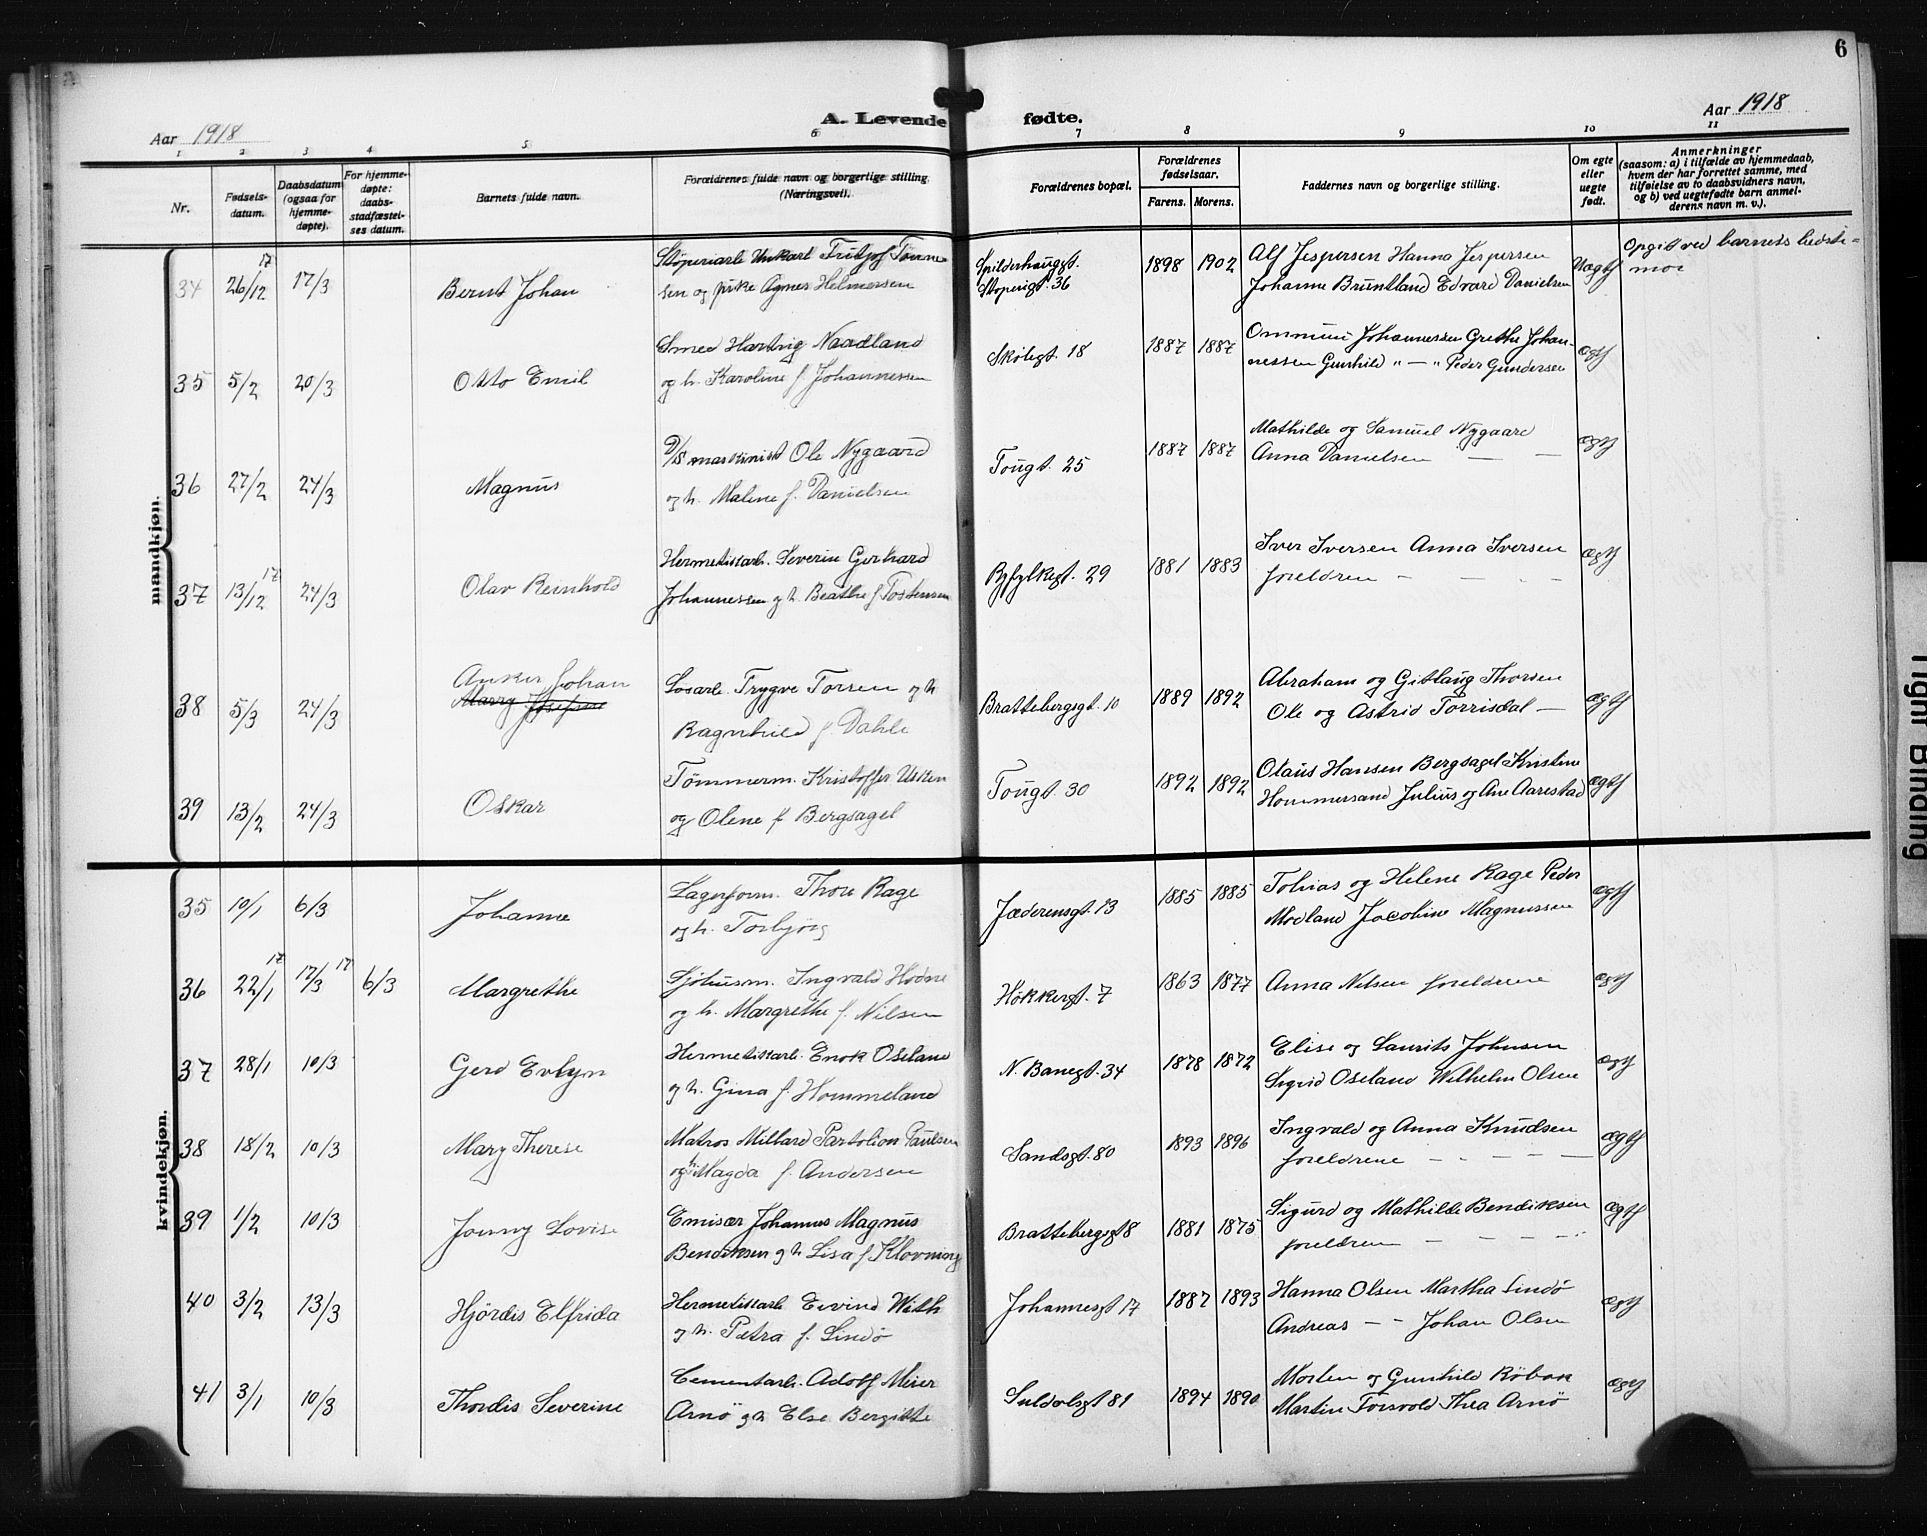 6
Aar 1918
A. Levende fødte.
Aar 1918
1 2 3 4 5 6 7 8 9 10 11
Nr.
Fødsels-
datum.
Daabsdatum
(ogsaa for
hjemme-
døpte).
For hjemme-
døpte:
daabs-
stadfæstel-
ses datum.
Barnets fulde navn.
Forældrenes fulde navn og borgerlige stilling
(Næringsvei).
Forældrenes bopæl.
Forældrenes
fødselsaar.
Farens. Morens.
Faddernes navn og borgerlige stilling.
Om egte
eller
uegte
født.
Anmerkninger
(saasom: a) i tilfælde av hjemmedaab,
hvem der har forrettet samme, med
tilføielse av to daabsvidners navn,
og b) ved uegtefødte barn anmel-
derens navn m. v.).
mandkjøn.
34 26/12 17 17/3 Bernt Johan
Støperiarb Fritjof Tønne-
sen og pike Agnes Helmersen
Spilderhaugst.
Støperigt. 36
1898 1902
Alf Jespersen Hanna Jespersen
Johanne Bruntland Edvard Danielsen
Uægte
Opgit ved barnets bedste-
mor
35 5/2 20/3 Otto Emil
Smed Hartvig Naadland
og h. Karoline f. Johannessen
Skolegt. 18
1887 1887
Ommund Johannessen Grethe Johan-
nessen Gunhild " — " Peder Gundersen
ægte
36 27/2 24/3 Magnus
D/S maskinist Ole Nygaard
og h. Malene f. Danielsen
Tougt. 25
1887 1887
Mathilde og Samuel Nygaard
Anna Danielsen — —
ægte
37 13/12 17 24/3 Olav Reinhold
Hermetikkarb. Severin Gerhard
Johannessen og h. Beathe f Tostensen
Ryfylkegt. 29
1881 1883
Iver Iversen Anna Iversen
foreldren - - - -
ægte
38 5/3 24/3 Anker Johan
Marry Josefine
Løsarb. Trygve Torsen og h
Ragnhild f. Dahle
Brattebergsgt. 10
1889 1892
Abraham og Gitlaug Thorsen
Ole og Astrid Torrisdal —
ægte
39 13/2 24/3 Oskar
Tømmerm. Kristoffer Usken
og Olene f Bergsagel
Tougt 30
1892 1892
Olaus Hansen Bergsagel Kristine
Hommersand Julius og Ane Aarestad
ægte
kvindekjøn.
35 10/1 6/3 Johanne
Lagerform. Thore Rage
og h. Torbjørg
Jæderensgt. 13
1885 1885
Tobias og Helene Rage Peder
Modland Jacobine Magnussen
ægte
36 22/1 17 17/3 17 6/3 Margrethe
Sjøhusm. Ingvald Hodne
og h. Margrethe f. Nilsen
Høkkergt. 7
1863 1877
Anna Nilsen foreldrene
ægte
37 28/1 10/3 Gerd Evlyn
Hermetikkarb. Enok Oseland
og h. Gina f. Hommeland
N. Banegt. 34
1878 1872
Elise og Laurits Johnsen
Sigrid Oseland Wilhelm Olsen
ægte
38 18/2 10/3 Mary Therese
Matros Millard Partolion Paulsen
og h Magda f. Andersen
Sandsgt. 80
1893 1896
Ingvald og Anna Knudsen
foreldrene - - - - —
ægte
39 1/2 10/3 Jonny Lovise
Emisær Johannes Magnus
Bendiksen og h Lisa f Klovning
Brattebergsgt 8
1881 1875
Sigurd og Mathilde Bendiksen
foreldren - - - -
ægte
40 3/2 13/3 Hjørdis Elfrida
Hermetikkarb Eivind With
og h. Petra f. Lindø
Johannesgt 17
1887 1893
Hanna Olsen Martha Lindø
Andreas - - Johan Olsen
ægte
41 3/1 10/3 Thordis Severine
Cementarb. Adolf Meier
Arnø og h Else Bergitte
Suldalsgt 81
1894 1890
Morten og Gunhild
Martin Torsvold Thea Arnø
ægte
Tight Binding